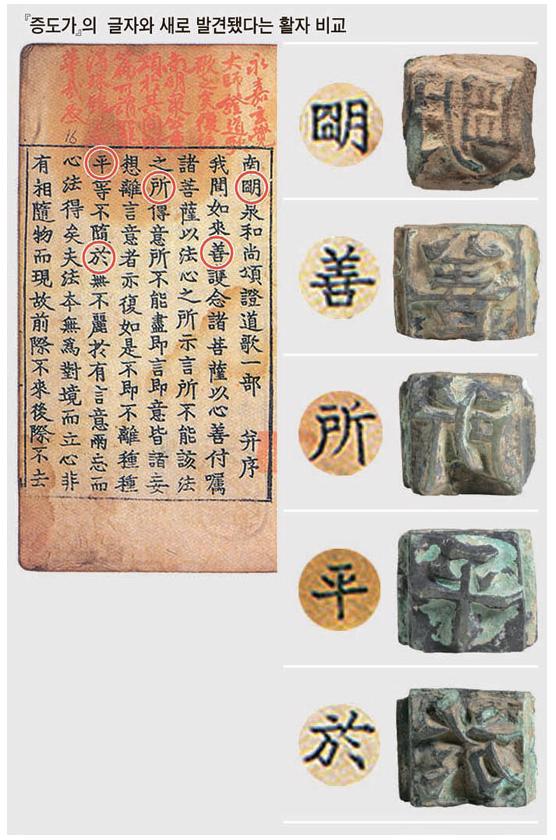 『증도가』의 글자와 새로 발견됐다는 활자 비교
大師證道歌
16
南朙泉和尚頌證道歌一部 并序
我聞如來善護念諸菩薩以心善付囑
諸菩薩以法心之所示言所不能該法
之所得意所不能盡即言即意皆諸妄
想離言意者亦復如是不即不離種種
平等不隨於無不麗於有言意兩忘而
心法得矣夫法本無為對境而立心非
有相隨物而現故前際不來後際不去
朙
善
所
平
於